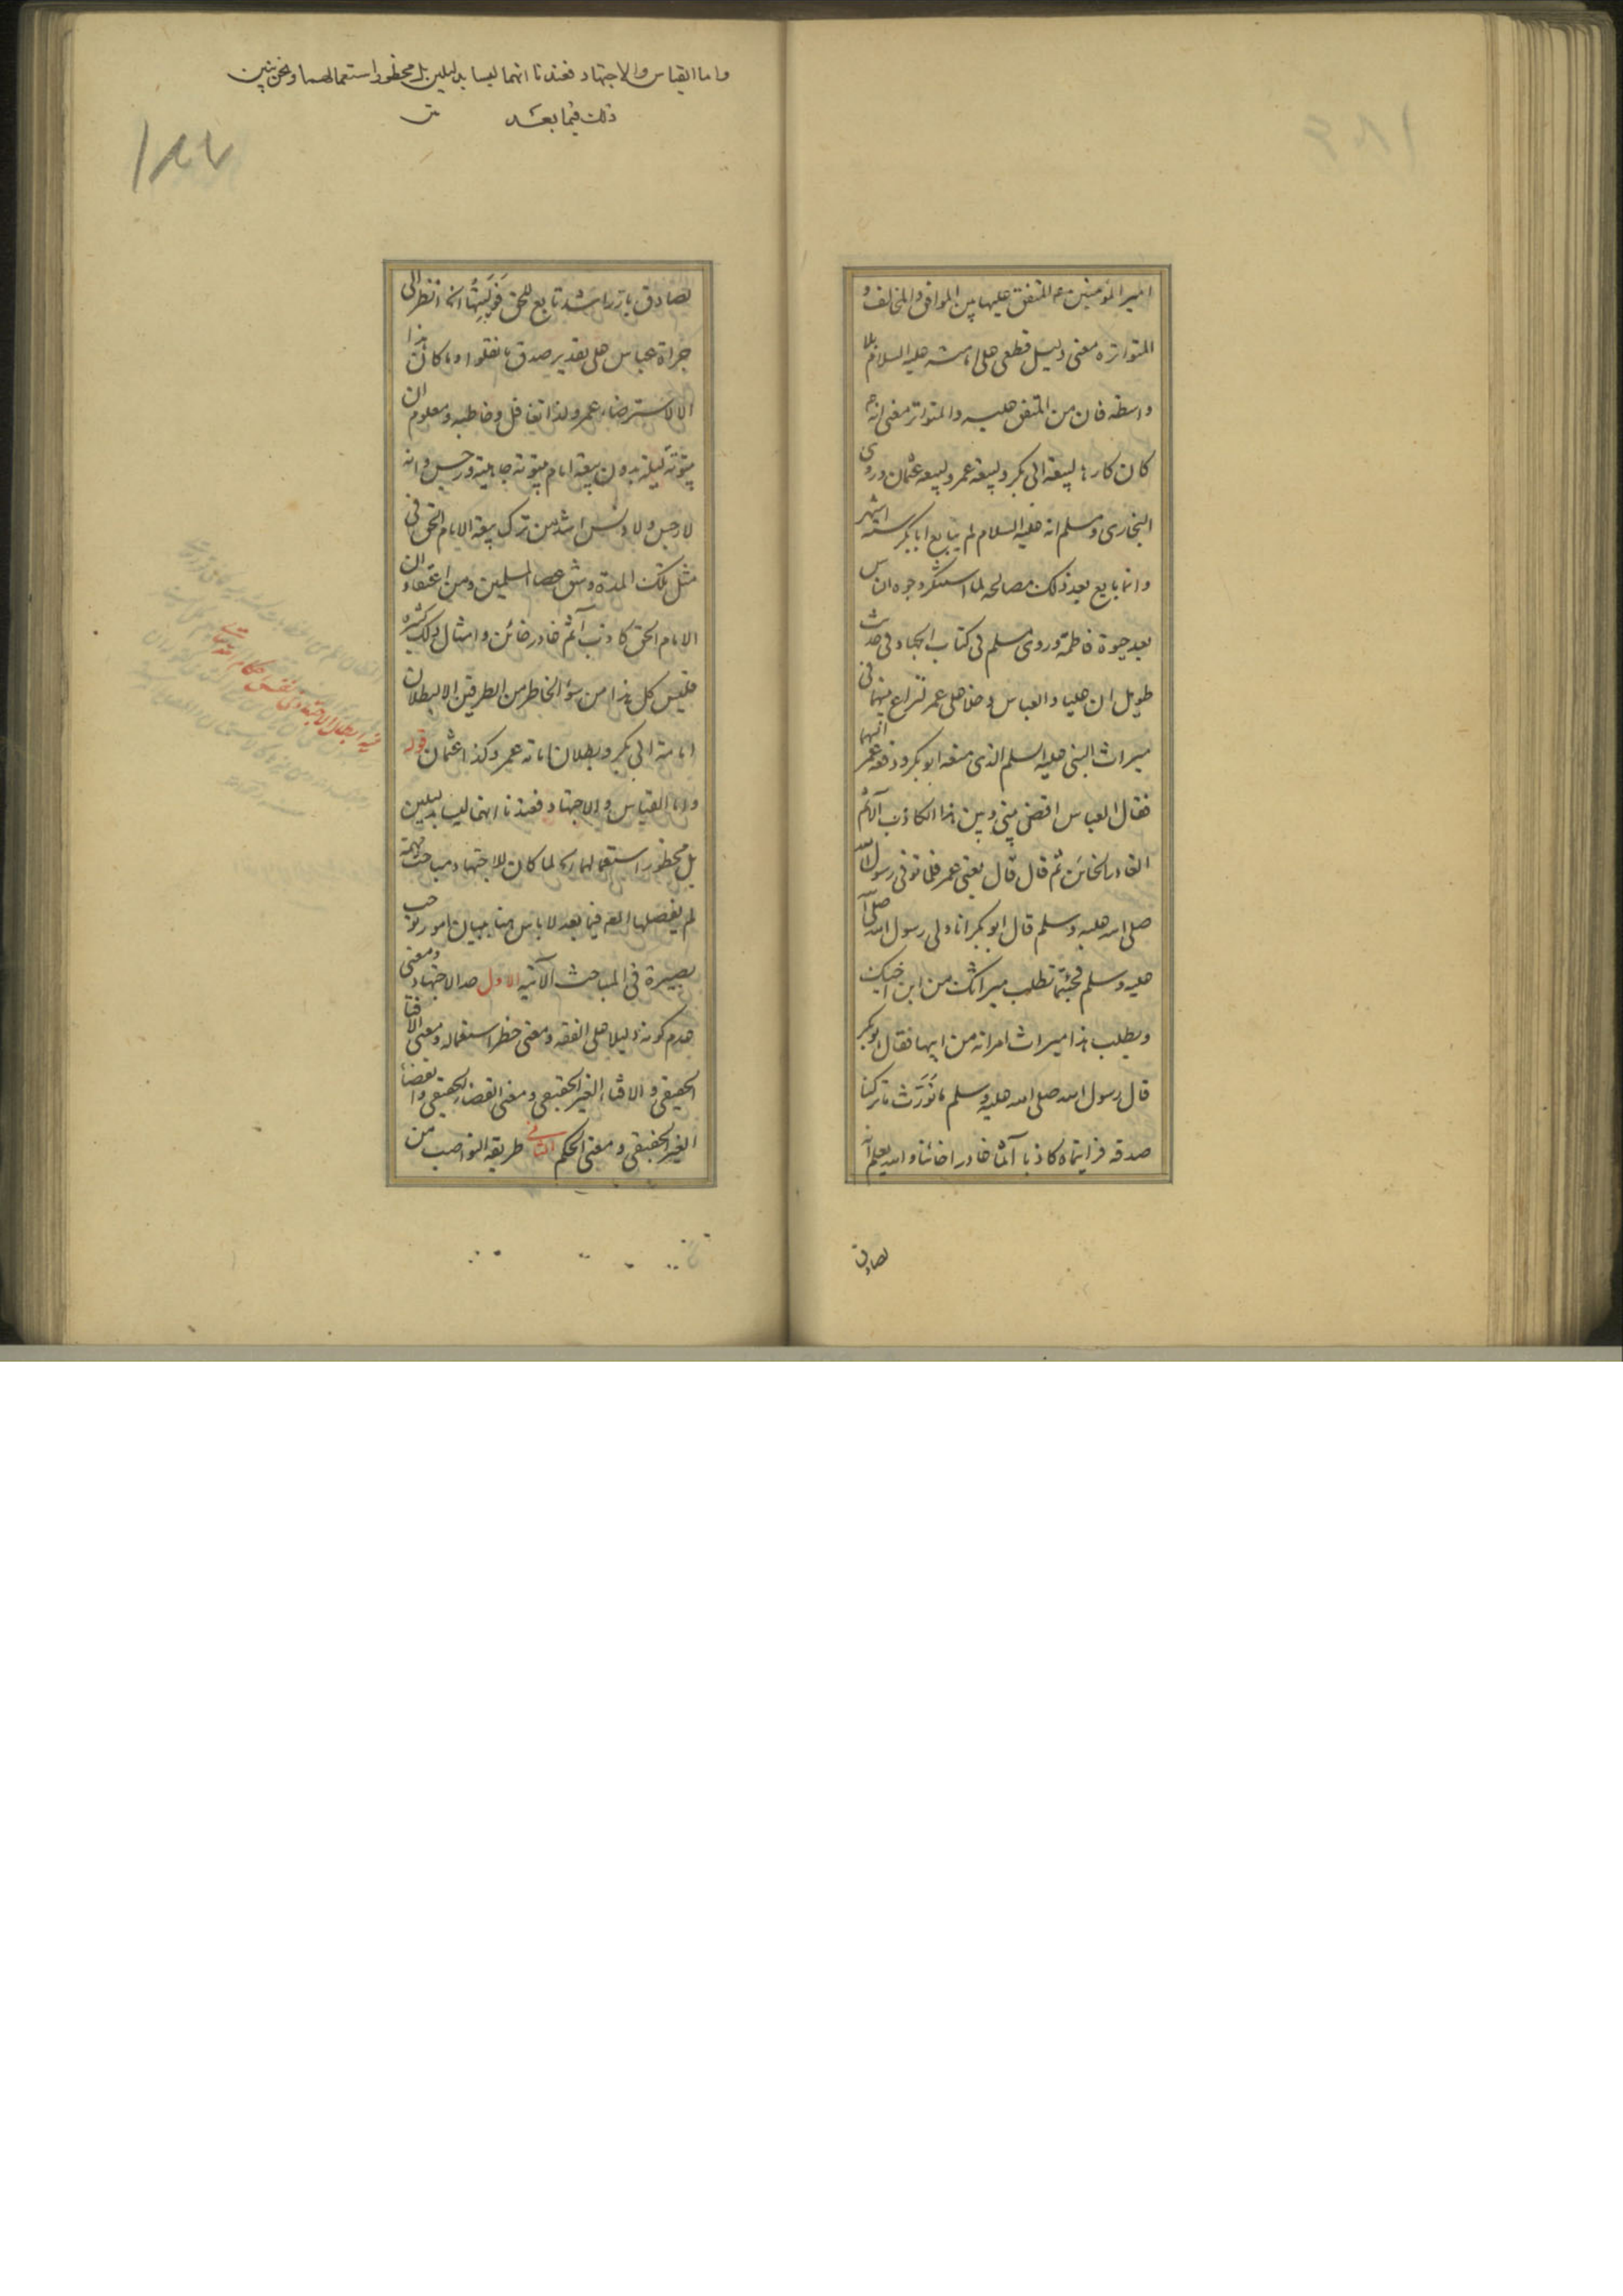 امير المؤمنين ع م المتفق عليها بين الموافق والمخالف و
المتواتره معنى دليل قطعى على امامته عليه السلام بلا
واسطه فان من المتفق عليه والمتواتر معنى انه ع م
كان كارها لبيعة ابى بكر ولبيعة عمر ولبيعة عثمان وروى
البخارى ومسلم انه عليه السلام لم يبايع ابابكر ستة اشهر
وانما بايع بعد ذلك مصالحه لما استنكر وجوه الناس
بعد حيوة فاطمة وروى مسلم فى كتاب الجهاد فى حديث
طويل ان عليا والعباس دخلا على عمر لنزاع بينهما فى
ميراث النبى عليه السلم الذى منعه ابو بكر ودفعه عمر اليهما
فقال العباس اقض بينى وبين هذا الكاذب الآثم
الغادر الخائن ثم قال قال يعنى عمر فلما توفى رسول الله
صلى الله عليه وسلم قال ابو بكر انا ولى رسول الله صلى الله
عليه وسلم فجئتما تطلب ميراثك من ابن اخيك
ويطلب هذا ميراث امراته من ابيها فقال ابو بكر
قال رسول الله صلى الله عليه وسلم ما نُوَرِّث ما تركنا
صدقه فرايتماه كاذبا آثما غادرا خائنا والله يعلم انه
لصادق
واما القياس والاجتهاد فعندنا انهما ليسا بدليلين بل محظور استعمالهما ونحن نبين
ذلك فيما بعد
١٨٧
لصادق بار راشد تابع للحق فوليتها انه انظر الى
جراة عباس على تقدير صدق ما نقلوا وما كانت هذا
الا لاسترضاء عمر ولذا تغافل وخاطبه ومعلوم ان
بيتوتة ليلة بدون بيعة امام بيتوتة جاهلية ورجس وانه
لا رجس ولا دنس اشد من ترك بيعة الامام الحق فى
مثل تلك المدة وشق عصا المسلمين ومن اعتقاد ان
الامام الحق كاذب آثم غادر خائن وامثال ذلك كثيره
فليس كل هذا من سوء الخاطر من الطرفين الا لبطلان
امامة ابى بكر وبطلان امامة عمر وكذا عثمان قوله
واما القياس والاجتهاد فعندنا انهما ليسا بدليلين
بل محظور استعمالهما اه لما كان للاجتهاد مباحث مهمة
لم يفصلها المص فيما بعد لا باس هنا ببيان امور توجب
بصيرة فى المباحث الآتيه الاول حد الاجتهاد ومعنى
عدم كونه دليلا على الفقه ومعنى حظر استعماله ومعنى الافتاء
الحقيقى والافتاء الغير الحقيقى ومعنى القضاء الحقيقى والقضاء
الغير الحقيقى ومعنى الحكم الثانى طريقه النواصب من